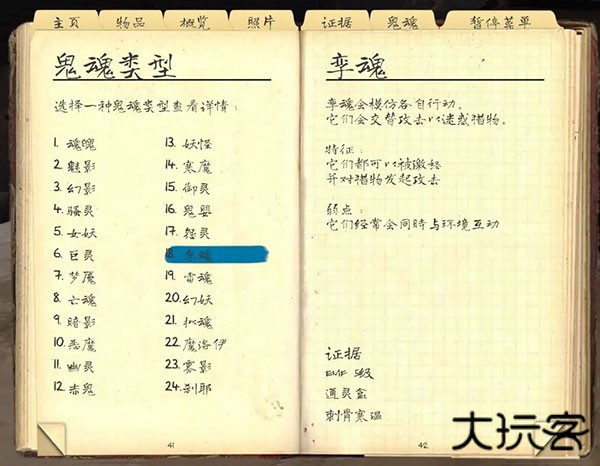 主页 物品 概览 照片 证据 鬼魂 暂停菜单
鬼魂类型
选择一种鬼魂类型查看详情:
1. 魂魄
2. 魅影
3. 幻影
4. 骚灵
5. 女妖
6. 巨灵
7. 梦魇
8. 亡魂
9. 暗影
10. 恶魔
11. 幽灵
12. 赤鬼
13. 妖怪
14. 寒魔
15. 御灵
16. 鬼婴
17. 怨灵
18. 孪魂
19. 雷魂
20. 幻妖
21. 拟魂
22. 魔洛伊
23. 雾影
24. 刹耶
41
孪魂
孪魂会模仿各自行动。
它们会交替攻击以迷惑猎物。
特征:
它们都可以被激怒
并对猎物发起攻击
弱点:
它们经常会同时与环境互动
证据
EMF 5级
通灵盒
刺骨寒温
42
大玩客